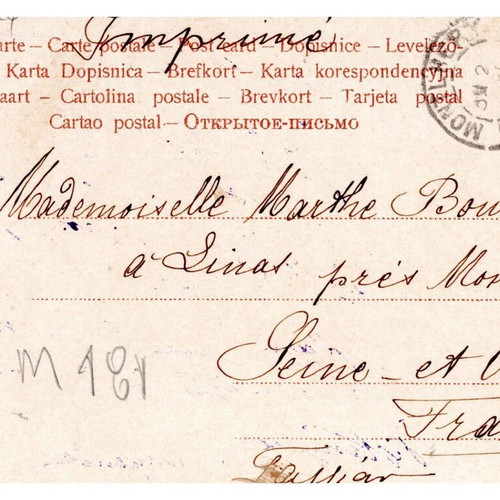 Imprimé
arte – Carte postale – Post card – Dopisnice – Levelező
Karta Dopisnica – Brefkort – Karta korespondencyjna
aart – Cartolina postale – Brevkort – Tarjeta postal
Cartao postal – Открытое-письмо
Mademoiselle Marthe Bou
à Linas près Mon
Seine – et O
Fra
M 181